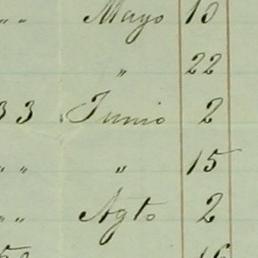 " " Mayo 10
" 22
33 Junio 2
" " " 15
" " Agto 2
16